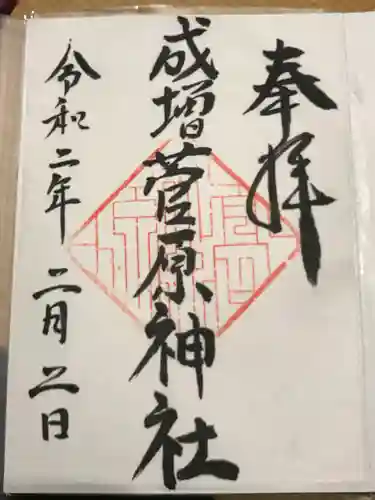 奉拝
成増菅原神社
令和二年二月二日